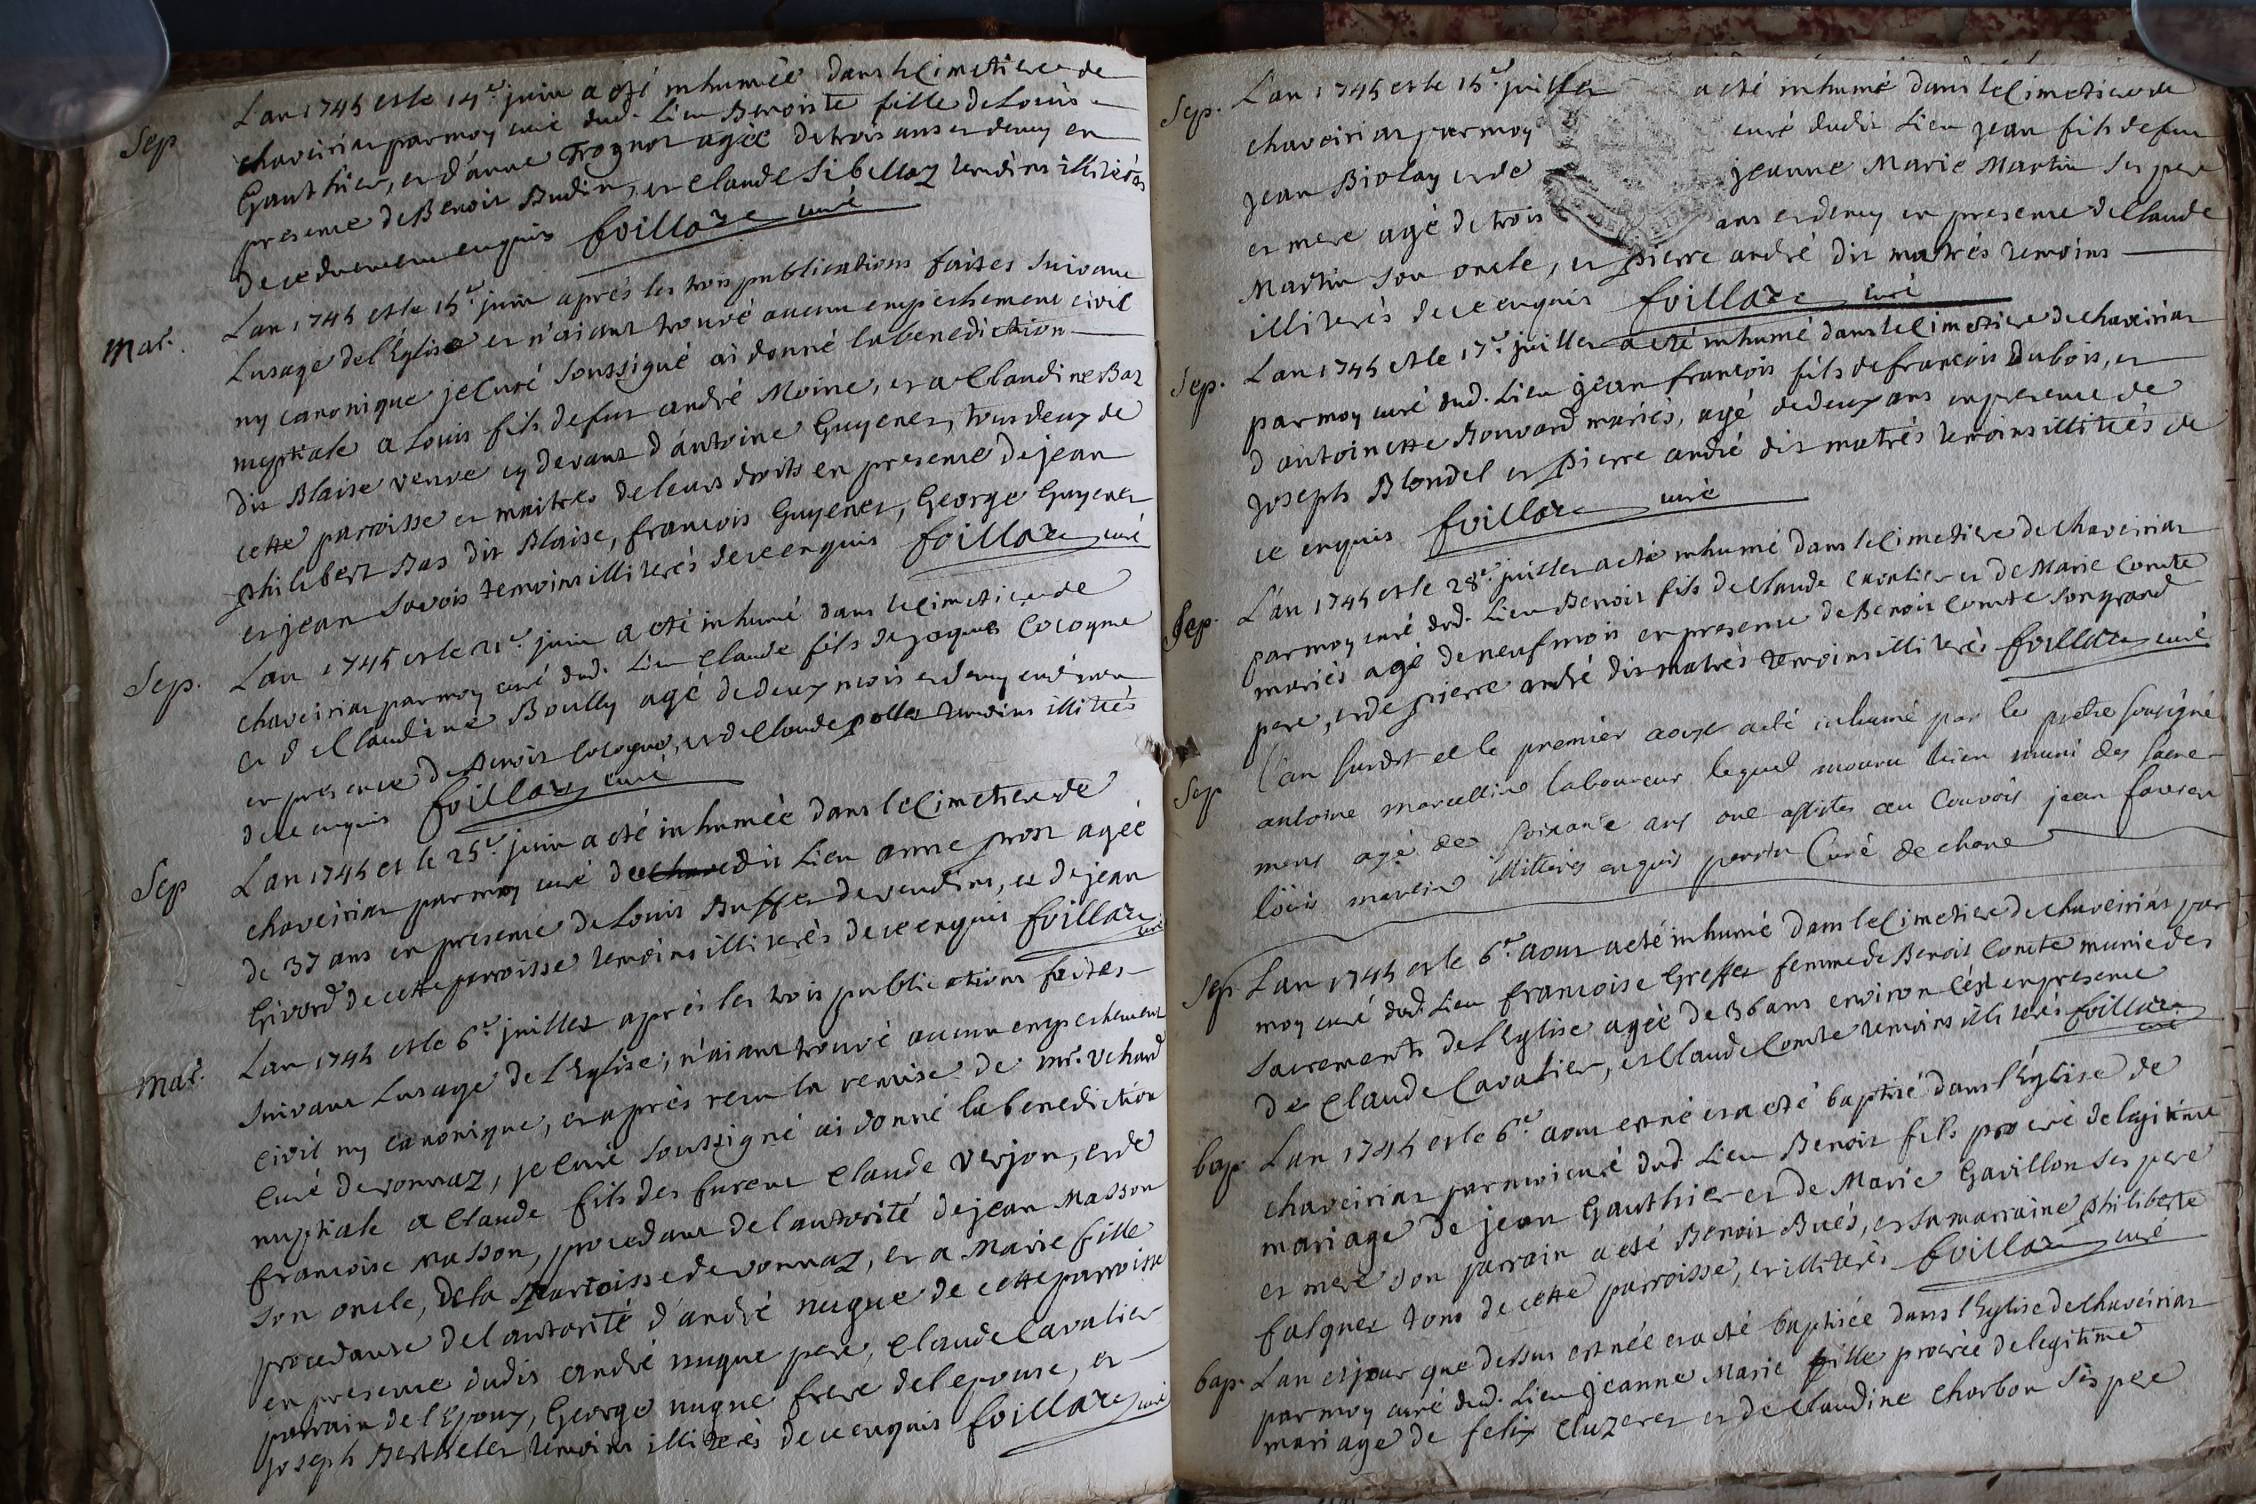 Sep. L'an 1745 et le 14e juin a eté inhumée dans le Cimetiere de
chaveiriat par moy curé dud. Lieu Benoiste fille de Louis
Gauthier, et d'anne Trognot agée de trois ans et demy en
presence de Benoit Budin, et Claude Sibellaz temoins illiterés
de ce duement enquis foillaz curé
Mar. L'an 1745 et le 15e juin aprés les trois publications faites suivant
Lusage de l'Eglise et n'aiant trouvé aucun empechement civil
ny canonique je Curé soussigné ai donné la benediction
nuptiale a Louis fils de feu andré Moine, et a Claudine Baz
dit Blaise veuve cy devant d'antoine Guyenet, tous deux de
cette parroisse et maitres de leurs droits en presence de jean
philibert Bas dit Blaise, francois Guyenet, George Guyenet
et jean Savois temoins illiterés de ce enquis foillaz curé
Sep. L'an 1745 et le 21e juin a eté inhumé dans le Cimetiere de
chaveiriat par moy curé dud. Lieu Claude fils de jaques Cocogne
et de Claudine Boully agé de deux mois et demy
en presence de Benoit Cocogne, et de Claude pollet temoins illiterés
de ce enquis foillaz curé
Sep L'an 1745 et le 25e juin a eté inhumée dans le Cimetiere de
chaveiriat par moy curé dudit Lieu anne prost agée
de 37 ans en presence de Louis Buffet de vendins, et de jean
Givord de cette parroisse temoins illiterés de ce enquis foillaz curé
Mar. L'an 1745 et le 6e juillet aprés les trois publications faites
suivant Lusage de l'Eglise, n'aiant trouvé aucun empechement
civil ny canonique, et aprés recu la remise de mr. vchard
curé de vonnaz, je Curé soussigné ai donné la benediction
nuptiale a Claude fils des furent Claude verjon, et de
francoise Masson, procedant de l'autorité de jean Masson
son oncle, de la parroisse de vonnaz, et a Marie fille
procedante de l'autorité d'andré nugue de cette parroisse
en presence dudit andré nugue pere, Claude Cavalier
parrain de l'Epoux, George nugue frere de l'epouse, et
joseph Berthelet, temoins illiterés de ce enquis foillaz curé
Sep. L'an 1745 et le 15e juillet a eté inhumé dans le Cimetiere de
chaveiriat par moy curé dudit Lieu jean fils de feu
jean Biolay et de jeanne Marie Martin ses pere
et mere agé de trois ans et demy en presence de Claude
Martin son oncle, et pierre andré dit matrés temoins
illiterés de ce enquis foillaz curé
Sep. L'an 1745 et le 17e juillet a eté inhumé dans le Cimetiere de chaveiriat
par moy curé dud. Lieu jean francois fils de francois Dubois, et
d'antoinette Bouvard mariés, agé de deux ans en presence de
joseph Blondel et pierre andré dit matrés temoins illiterés de
ce enquis foillaz curé
Sep. L'an 1745 et le 28e juillet a eté inhumé dans le Cimetiere de chaveiriat
par moy curé dud. Lieu Benoit fils de Claude Cavalier et de Marie Comte
mariés agé de neuf mois en presence de Benoit Comte son grand
pere, et de pierre andré dit matrés temoins illiterés foillaz curé
Sep L'an susdt et le premier aoust a eté inhumé par le pretre sousigné
antoine marcellin laboureur lequel mouru bien muni des sacre
mens agé de soixante ans ont assistes au Convois jean
löuis illiterés enquis perrin Curé de chane
Sep. L'an 1745 et le 6e aout a eté inhumé dans le Cimetiere de chaveiriat par
moy curé dud. Lieu francoise Greffet femme de Benoit Comte munie des
sacrements de l'Eglise agée de 36 ans environ c'est en presence
de Claude Cavalier, et Claude Comte temoins illiterés foillaz curé
bap. L'an 1745 et le 6e aout est né et a eté baptisé dans l'Eglise de
chaveiriat par moi curé dud. Lieu Benoit fils procreé de legitime
mariage de jean Gauthier et de Marie Gavillon ses pere
et mere son parrain a eté Benoit Bués, et sa marraine philiberte
falquet tous de cette parroisse, et illiterés foillaz curé
bap. L'an et jour que dessus est née et a eté baptisée dans l'Eglise de chaveiriat
par moy curé dud. Lieu jeanne Marie fille procreée de legitime
mariage de felix Cluzeret et de Claudine Charbon ses pere